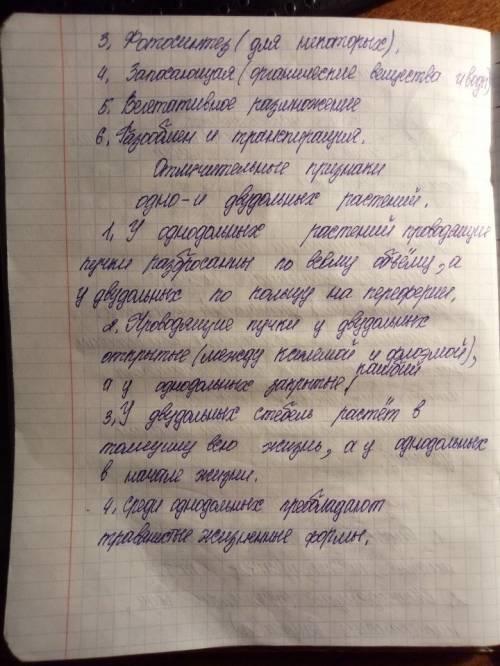 3. Фотосинтез (для некоторых).
4. Запасающая (органические вещества и воду)
5. Вегетативное размножение
6. Газообмен и транспирация.
Отличительные признаки
одно-и двудольных растений.
1. У однодольных растений проводящие
пучки разбросанны по всему объёму, а
у двудольных по кольцу на переферии.
2. Проводящие пучки у двудольных
открытые (между ксилемой и флоэмой),
а у однодольных закрытые,
3. У двудольных стебель растёт в
толщину всю жизнь, а у однодольных
в начале жизни.
4. Среди однодольных преобладают
травянистые жизненные формы.